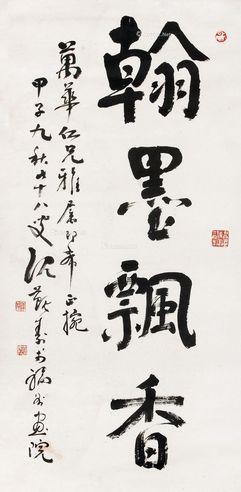 翰墨飄香
萬華仁兄雅屬即希正捥
甲子九秋六十八叟沉蘇春書于福州畫院